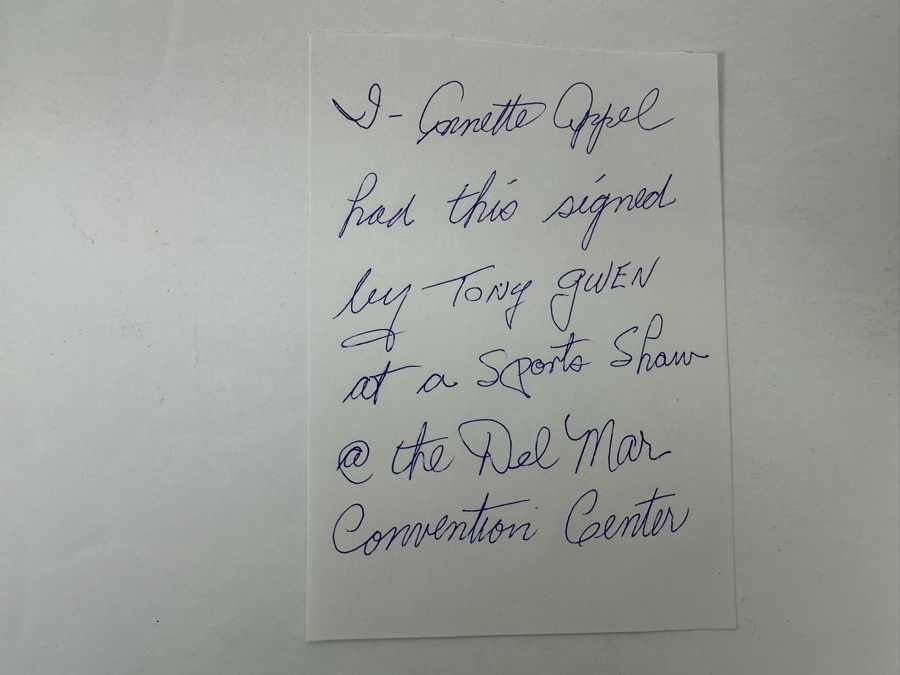 I- Annette Appel
had this signed
by Tony GWEN
at a Sports Show
@ the Del Mar
Convention Center